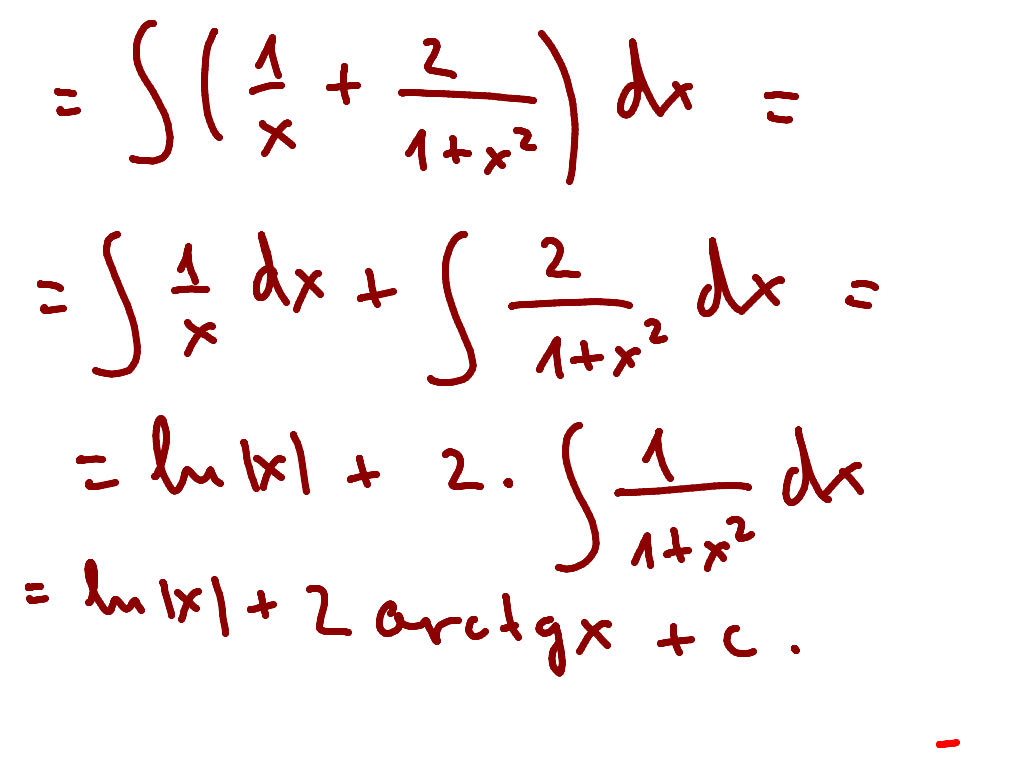 = ∫ ( 1/x + 2/(1+x²) ) dx =
= ∫ 1/x dx + ∫ 2/(1+x²) dx =
= ln |x| + 2 · ∫ 1/(1+x²) dx
= ln |x| + 2 arctg x + c .